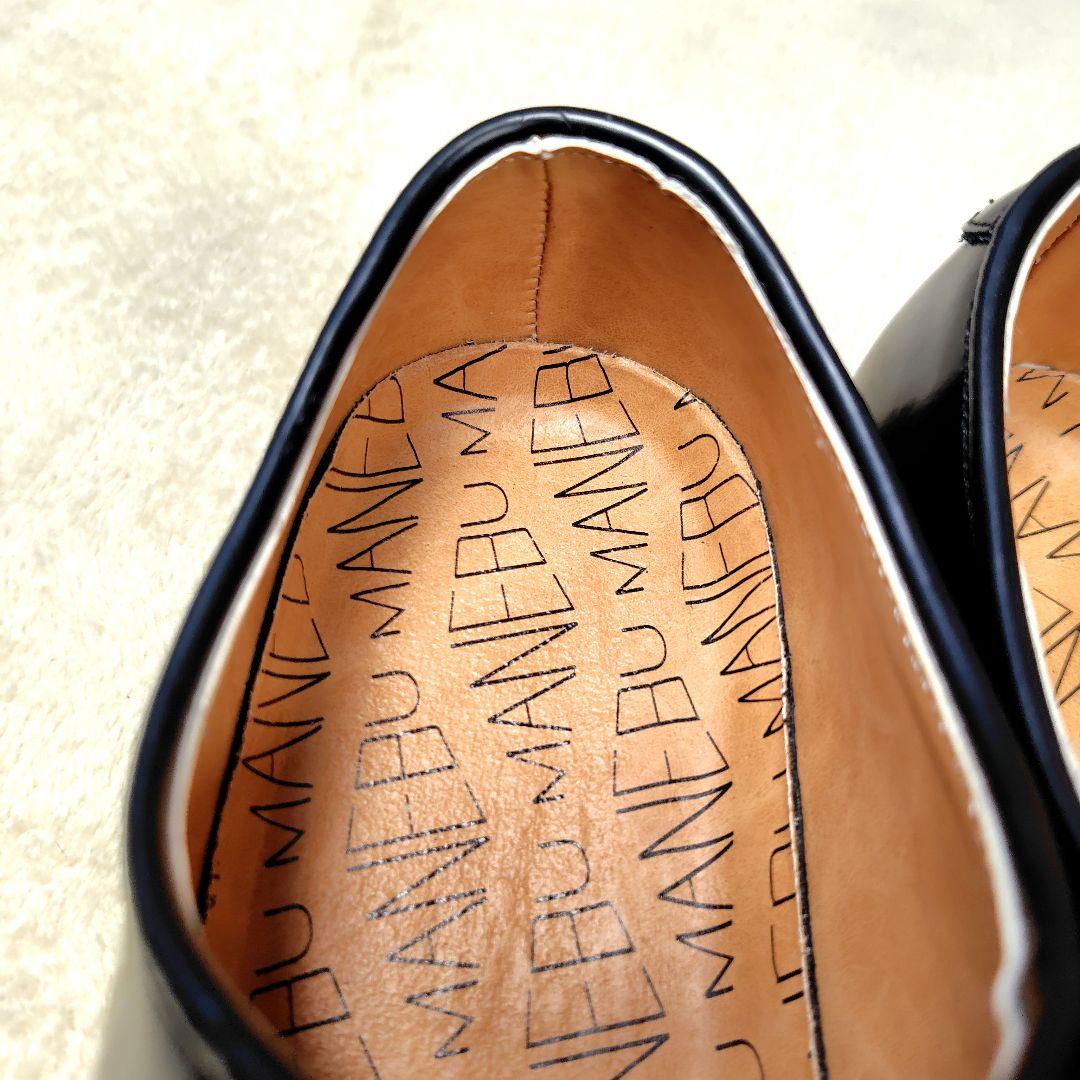 MANEBU MANEBU
MANEBU MANEBU MANEBU
MANEBU MANEBU MANEBU
MANEBU MANEBU